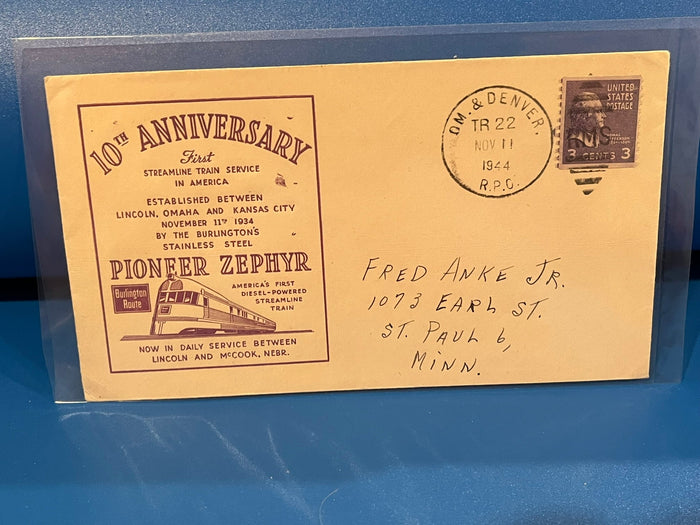 10TH ANNIVERSARY
First
STREAMLINE TRAIN SERVICE
IN AMERICA
ESTABLISHED BETWEEN
LINCOLN, OMAHA AND KANSAS CITY
NOVEMBER 11TH 1934
BY THE BURLINGTON'S
STAINLESS STEEL
PIONEER ZEPHYR
Burlington
Route
AMERICA'S FIRST
DIESEL-POWERED
STREAMLINE
TRAIN
NOW IN DAILY SERVICE BETWEEN
LINCOLN AND McCOOK, NEBR.
OM. & DENVER.
TR 22
NOV 11
1944
R.P.O.
UNITED
STATES
POSTAGE
RMS
3 CENTS 3
FRED ANKE JR.
1073 EARL ST.
ST. PAUL 6,
MINN.